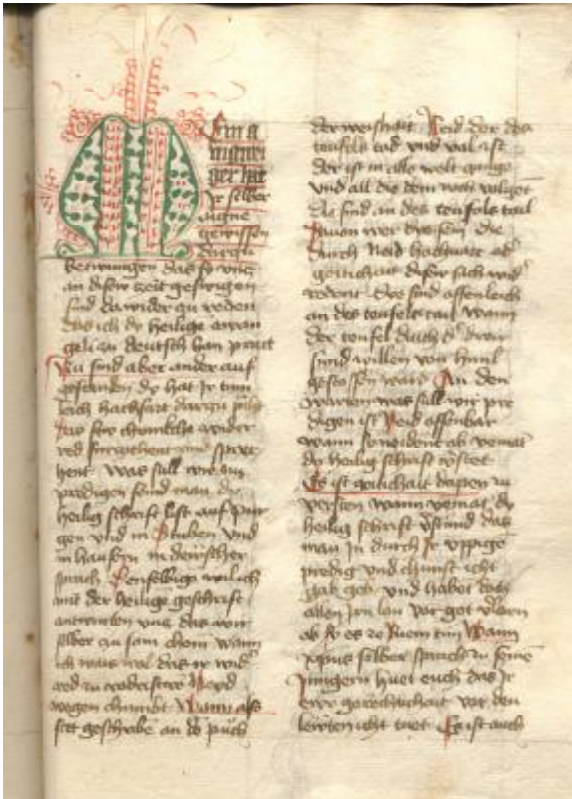 hat
Jr selber
aigne
gewissen
darzu
betwungen das sy vncz
an diser zeit geswigen
sind dawider zu reden
das ich dy heilige ewan
geli zu deutsch han pracht
Nu sind aber ander auf
gestanden dy hat Jr tum
leich hachfart darzu
das sew wider
red
hent was sull wir nu
predigen seind man die
heilig schrift list auf pur
gen vnd in Stuben vnd
in hausern in deutscher
sprach Denselbigen wil ich
mit der heilige geschrift
antwurten vnd das wir
selber zu sam chom wann
ich wais wol das ir wid
red zu Neyd
wegen chumbt Wann als
stet geschribe an der puch
der weishait Neid der des
teufels tad vnd val ist
der ist in alle welt gangen
vnd all die dem nach volget
die sind an des teufels tail
Nun wer die sein die
durch Neid hachvart ad
geitichait diser sich wid
redent Die sind offenleich
an des teufels tail wann
der teufel durch der dreir
sund willen von himl
gestossen ward An den
warten was sull wir pre
digen ist Neid offenbar
wann so neident ab yemat
dy heilig schrift
Es ist geitichait dapey zu
versten wann yemat dy
heilig schrift verstund das
man Jn durch Jr vppige
predig vnd chunst icht
gab geb vnd habet doch
allen Jrn lan vor got verlorn
ob sy es ze Ruem tun Wann
xpus selber sprach zu seine
Jungern huet euch das Jr
ewr gerechtichait vor den
lewten icht tuet Es ist auch